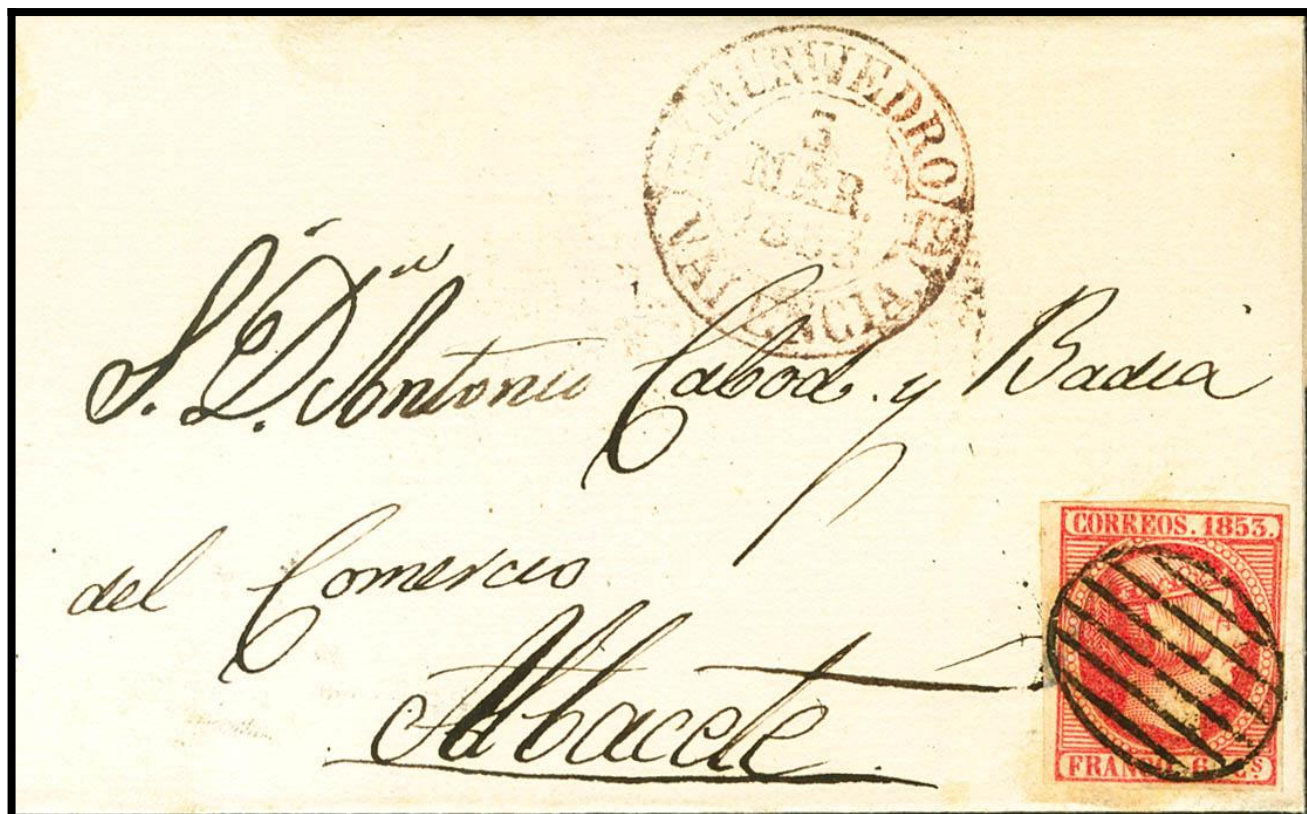 MURVIEDRO
5
MAR.
VALENCIA
S. D.n Antonio Cabod. y Badia
del Comercio
Albacete
CORREOS. 1853.
FRANCO. 6 Cs